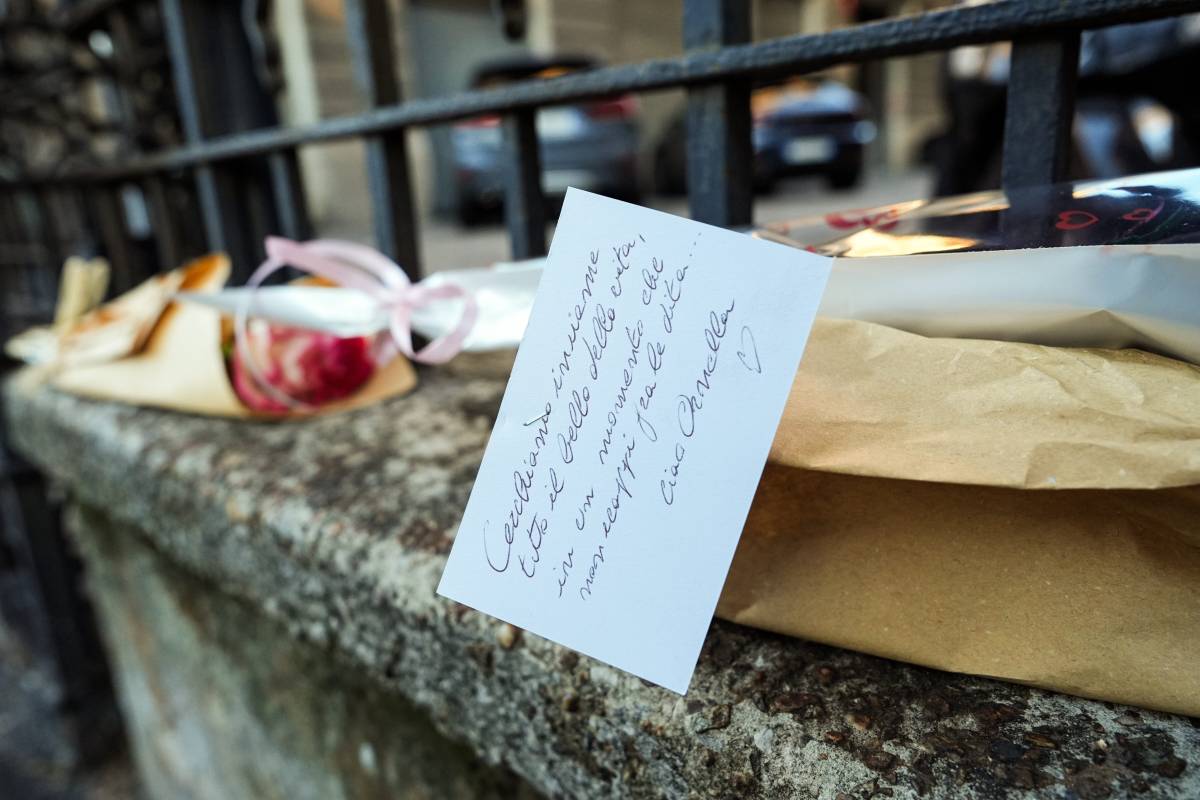 Cerchiamo insieme
tutto il bello della vita,
in un momento che
non scappi fra le dita....
Ciao Ornella